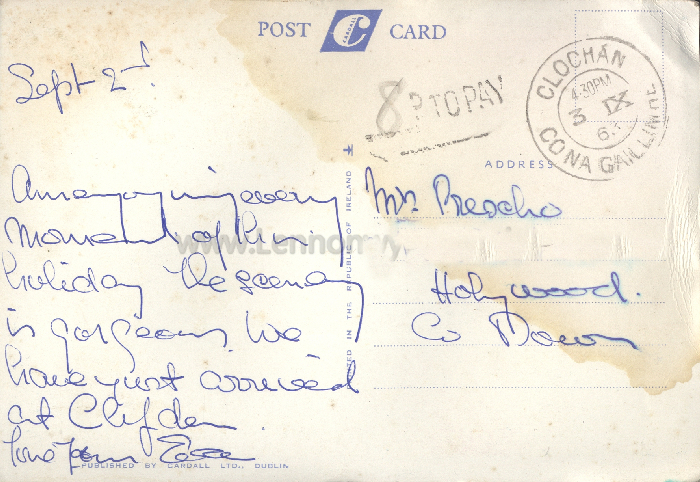 POST CARD
CARDALL
Sept 2nd
8 P TO PAY
CLOCHÁN
4.30PM
3 IX
CO NA GAILLIMHE
ADDRESS
Am enjoying every
moment of this
holiday The scenery
is gorgeous. We
have just arrived
at Clifden.
love from
Mrs. Prescho
Holywood.
Co Down
IN THE REPUBLIC OF IRELAND
PUBLISHED BY CARDALL LTD., DUBLIN
www.Lennon